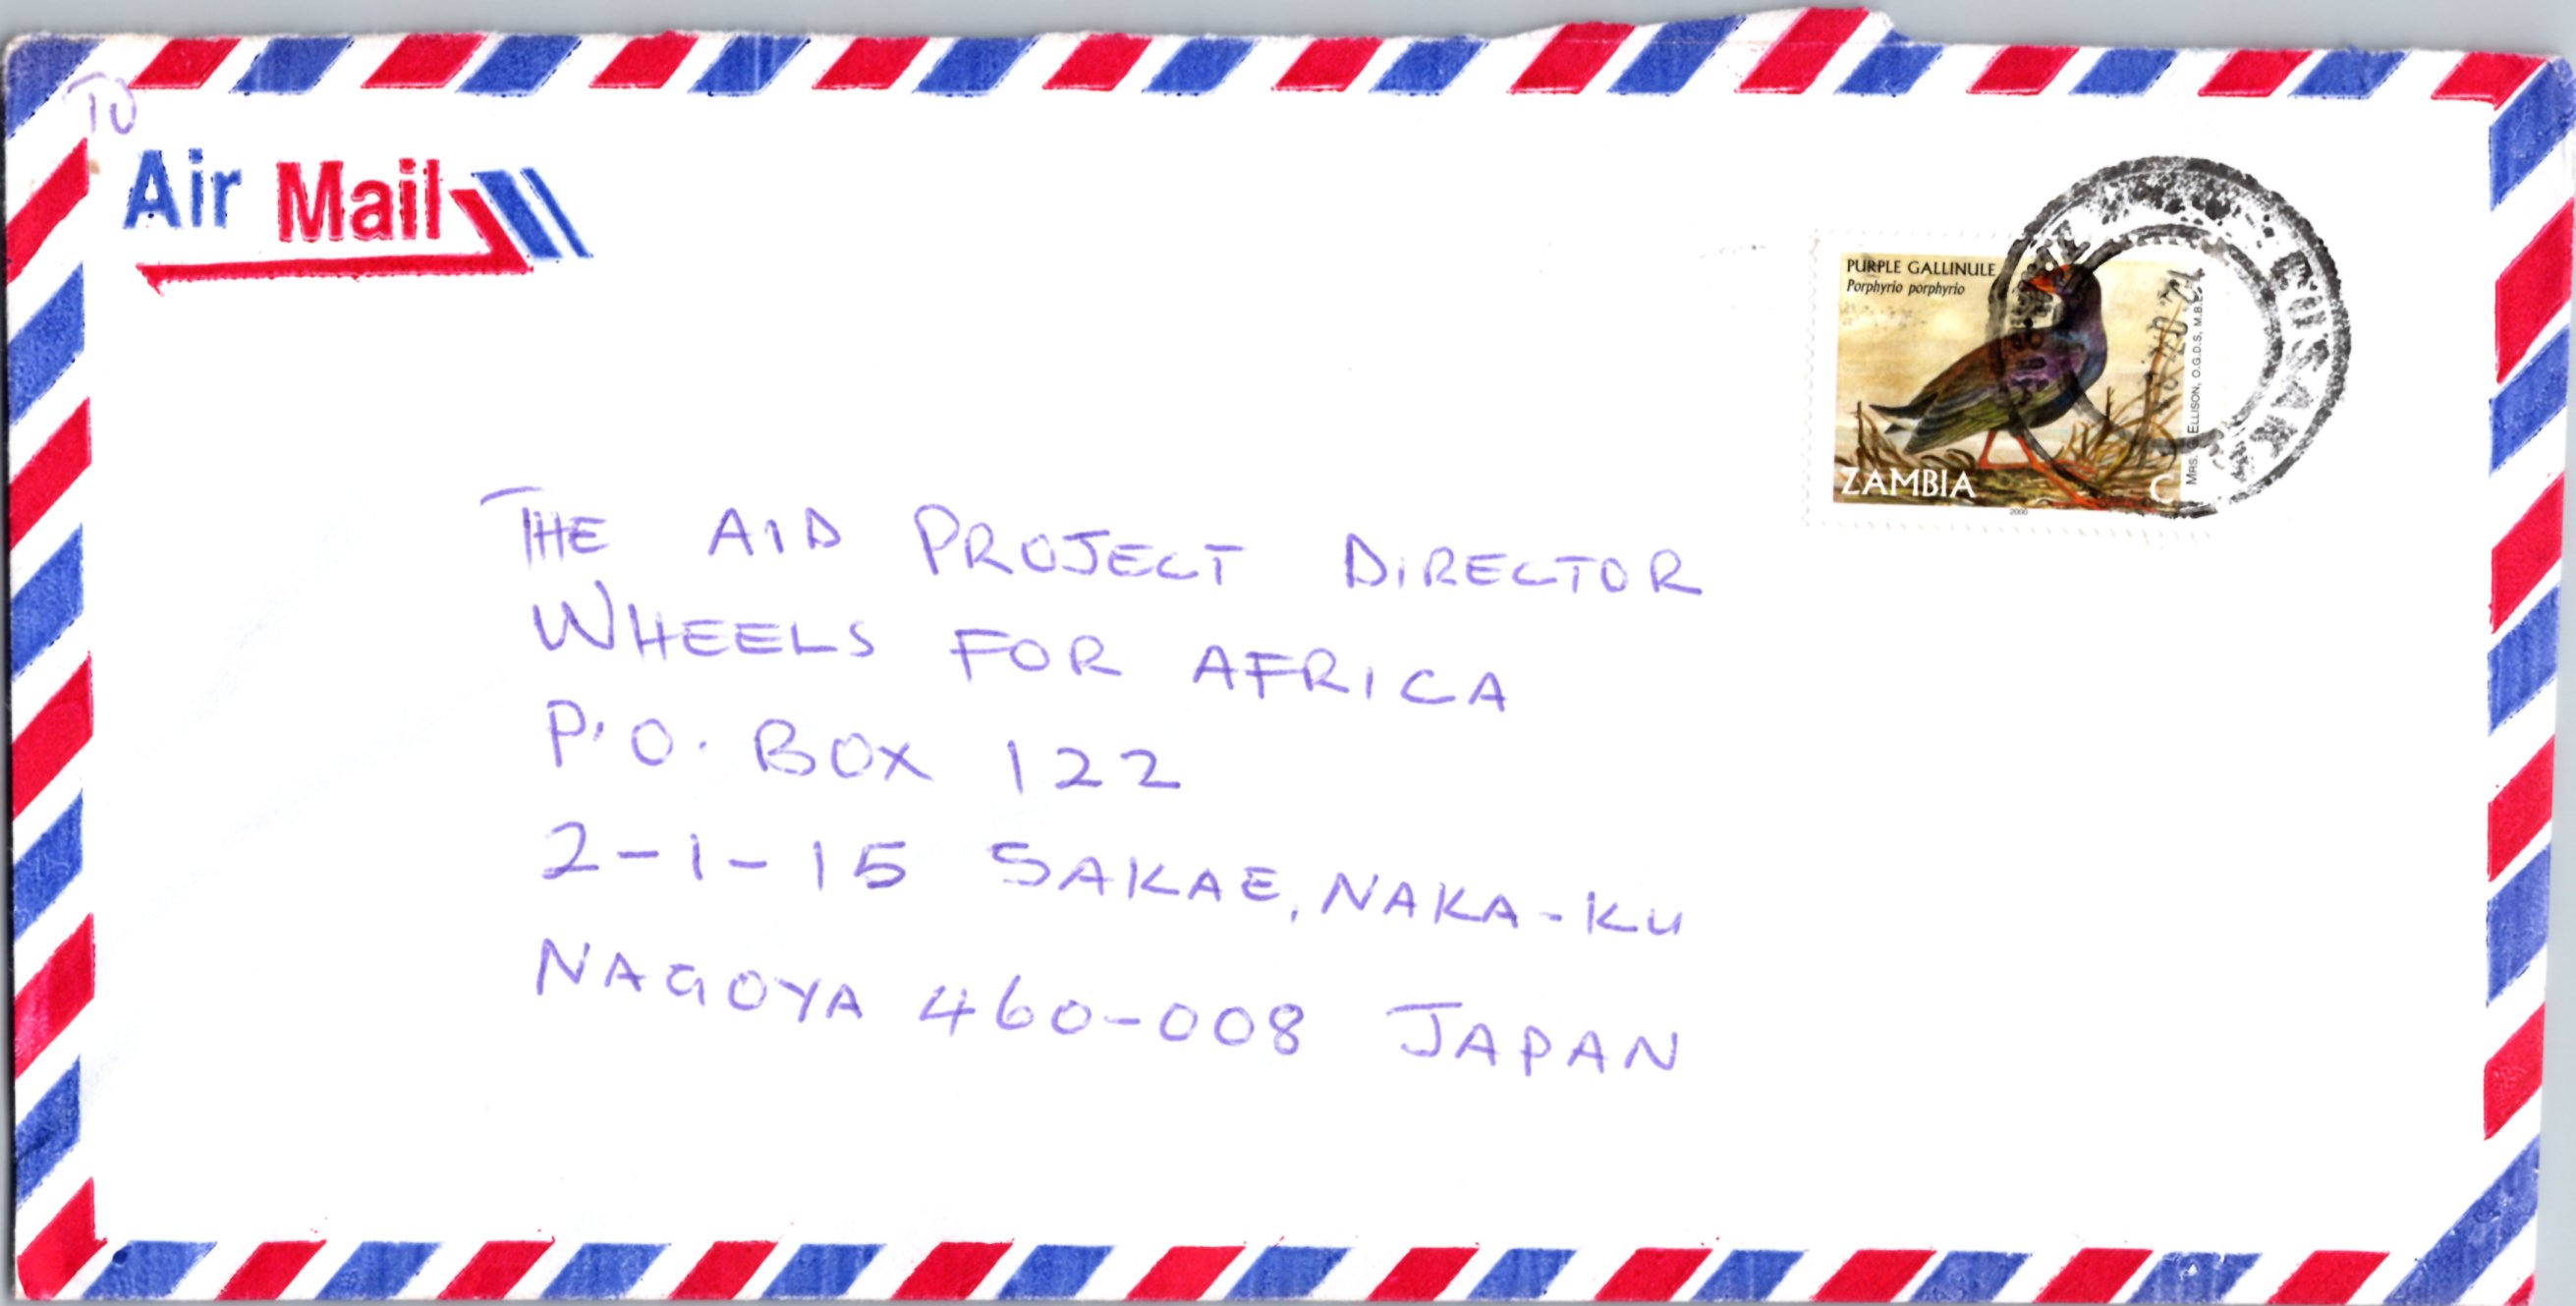 TO
Air Mail
PURPLE GALLINULE
Porphyrio porphyrio
ZAMBIA
C
2000
MRS. G ELLISON, O.G.D.S, M.B.E.
THE AID PROJECT DIRECTOR
WHEELS FOR AFRICA
P.O. BOX 122
2-1-15 SAKAE, NAKA-KU
NAGOYA 460-008 JAPAN